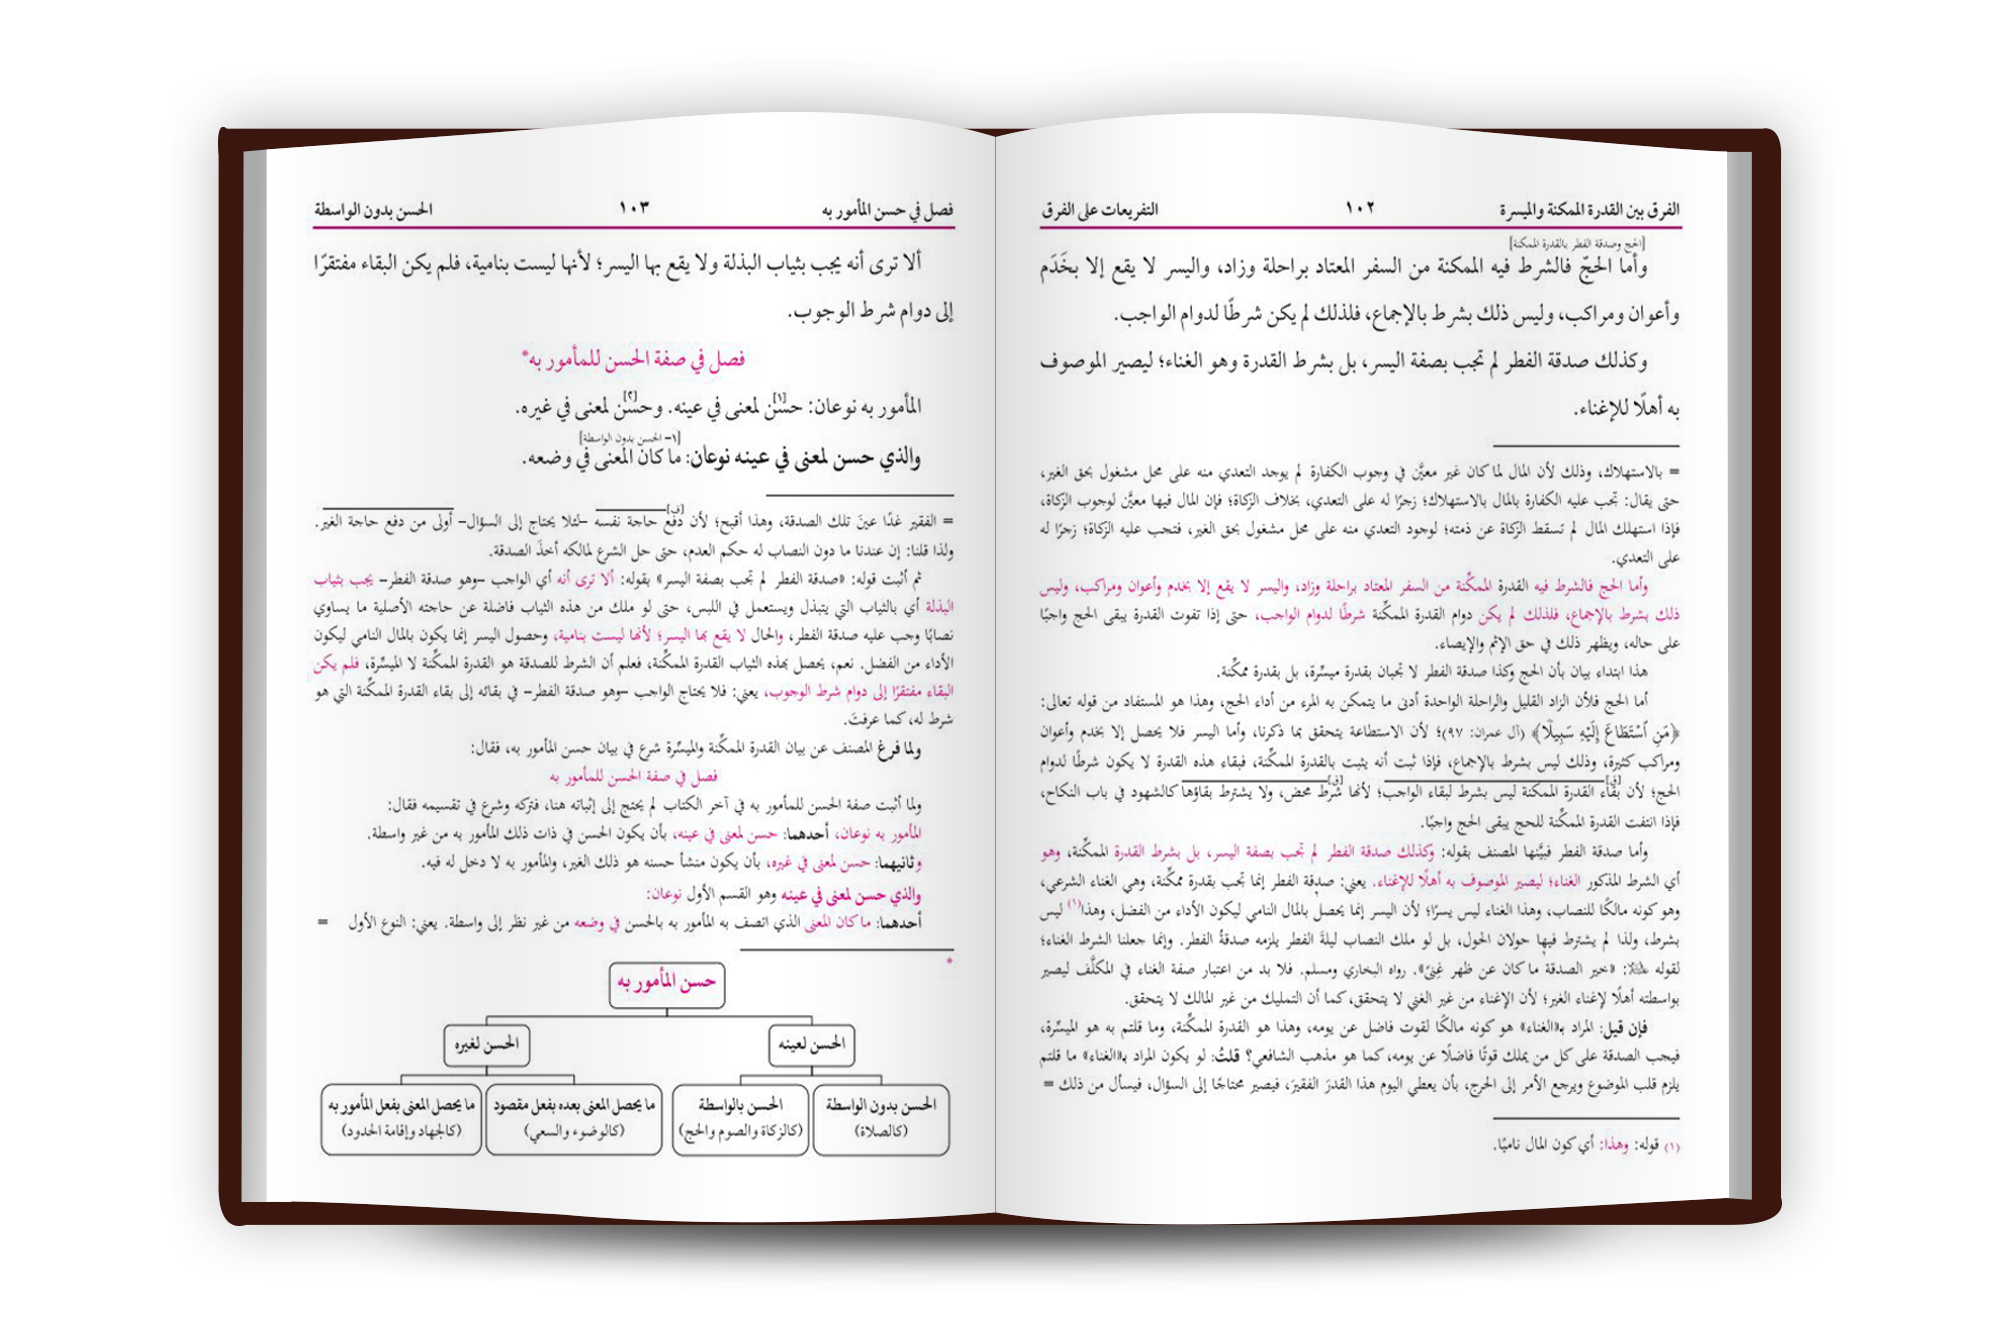 الفرق بين القدرة الممكنة والميسرة ١٠٢ التفريعات على الفرق
[الحج وصدقة الفطر بالقدرة الممكنة]
وأما الحجّ فالشرط فيه الممكنة من السفر المعتاد براحلة وزاد، واليسر لا يقع إلا بخَدَم
وأعوان ومراكب، وليس ذلك بشرط بالإجماع، فلذلك لم يكن شرطًا لدوام الواجب.
وكذلك صدقة الفطر لم تجب بصفة اليسر، بل بشرط القدرة وهو الغناء؛ ليصير الموصوف
به أهلًا للإغناء.
= بالاستهلاك، وذلك لأن المال لما كان غير معيَّن في وجوب الكفارة لم يوجد التعدي منه على محل مشغول بحق الغير،
حتى يقال: تجب عليه الكفارة بالمال بالاستهلاك؛ زجرًا له على التعدي، بخلاف الزكاة؛ فإن المال فيها معيَّن لوجوب الزكاة،
فإذا استهلك المال لم تسقط الزكاة عن ذمته؛ لوجود التعدي منه على محل مشغول بحق الغير، فتجب عليه الزكاة؛ زجرًا له
على التعدي.
وأما الحج فالشرط فيه القدرة الممكِّنة من السفر المعتاد براحلة وزاد، واليسر لا يقع إلا بخدم وأعوان ومراكب، وليس
ذلك بشرط بالإجماع، فلذلك لم يكن دوام القدرة الممكِّنة شرطًا لدوام الواجب، حتى إذا تفوت القدرة يبقى الحج واجبًا
على حاله، ويظهر ذلك في حق الإثم والإيصاء.
هذا ابتداء بيان بأن الحج وكذا صدقة الفطر لا تجبان بقدرة ميسِّرة، بل بقدرة ممكِّنة.
أما الحج فلأن الزاد القليل والراحلة الواحدة أدنى ما يتمكن به المرء من أداء الحج، وهذا هو المستفاد من قوله تعالى:
﴿مَنِ ٱسْتَطَاعَ إِلَيْهِ سَبِيلًا﴾ (آل عمران: ٩٧)؛ لأن الاستطاعة يتحقق بما ذكرنا، وأما اليسر فلا يحصل إلا بخدم وأعوان
ومراكب كثيرة، وذلك ليس بشرط بالإجماع، فإذا ثبت أنه يثبت بالقدرة الممكِّنة، فبقاء هذه القدرة لا يكون شرطًا لدوام
الحج؛ لأن بقاء القدرة الممكنة ليس بشرط لبقاء الواجب؛ لأنها شرط محض، ولا يشترط بقاؤها كالشهود في باب النكاح،
فإذا انتفت القدرة الممكِّنة للحج يبقى الحج واجبًا.
وأما صدقة الفطر فبيَّنها المصنف بقوله: وكذلك صدقة الفطر لم تجب بصفة اليسر، بل بشرط القدرة الممكِّنة، وهو
أي الشرط المذكور الغناء؛ ليصير الموصوف به أهلًا للإغناء. يعني: صدقة الفطر إنما تجب بقدرة ممكِّنة، وهي الغناء الشرعي،
وهو كونه مالكًا للنصاب، وهذا الغناء ليس يسرًا؛ لأن اليسر إنما يحصل بالمال النامي ليكون الأداء من الفضل، وهذا(١) ليس
بشرط، ولذا لم يشترط فيها حولان الحول، بل لو ملك النصاب ليلةَ الفطر يلزمه صدقةُ الفطر. وإنما جعلنا الشرط الغناء؛
لقوله ﷺ: «خير الصدقة ما كان عن ظهر غِنىً». رواه البخاري ومسلم. فلا بد من اعتبار صفة الغناء في المكلَّف ليصير
بواسطته أهلًا لإغناء الغير؛ لأن الإغناء من غير الغني لا يتحقق، كما أن التمليك من غير المالك لا يتحقق.
فإن قيل: المراد بـ«الغناء» هو كونه مالكًا لقوت فاضل عن يومه، وهذا هو القدرة الممكِّنة، وما قلتم به هو الميسِّرة،
فيجب الصدقة على كل من يملك قوتًا فاضلًا عن يومه، كما هو مذهب الشافعي؟ قلتُ: لو يكون المراد بـ«الغناء» ما قلتم
يلزم قلب الموضوع ويرجع الأمر إلى الحرج، بأن يعطي اليوم هذا القدرَ الفقيرَ، فيصير محتاجًا إلى السؤال، فيسأل من ذلك =
(١) قوله: وهذا: أي كون المال ناميًا.
فصل في حسن المأمور به ١٠٣ الحسن بدون الواسطة
ألا ترى أنه يجب بثياب البذلة ولا يقع بها اليسر؛ لأنها ليست بنامية، فلم يكن البقاء مفتقرًا
إلى دوام شرط الوجوب.
فصل في صفة الحسن للمأمور به*
المأمور به نوعان: حسن[١] لمعنى في عينه. وحسن[٢] لمعنى في غيره.
[١- الحسن بدون الواسطة]
والذي حسن لمعنى في عينه نوعان: ما كان المعنى في وضعه.
= الفقير غدًا عينَ تلك الصدقة، وهذا أقبح؛ لأن دفع حاجة نفسه –لئلا يحتاج إلى السؤال– أولى من دفع حاجة الغير.
ولذا قلنا: إن عندنا ما دون النصاب له حكم العدم، حتى حل الشرع لمالكه أخذَ الصدقة.
ثم أثبت قوله: «صدقة الفطر لم تجب بصفة اليسر» بقوله: ألا ترى أنه أي الواجب –وهو صدقة الفطر– يجب بثياب
البذلة أي بالثياب التي يتبذل ويستعمل في اللبس، حتى لو ملك من هذه الثياب فاضلة عن حاجته الأصلية ما يساوي
نصابًا وجب عليه صدقة الفطر، والحال لا يقع بها اليسر؛ لأنها ليست بنامية، وحصول اليسر إنما يكون بالمال النامي ليكون
الأداء من الفضل. نعم، يحصل بهذه الثياب القدرة الممكِّنة، فعلم أن الشرط للصدقة هو القدرة الممكِّنة لا الميسِّرة، فلم يكن
البقاء مفتقرًا إلى دوام شرط الوجوب، يعني: فلا يحتاج الواجب –وهو صدقة الفطر– في بقائه إلى بقاء القدرة الممكِّنة التي هو
شرط له، كما عرفتَ.
ولما فرغ المصنف عن بيان القدرة الممكِّنة والميسِّرة شرع في بيان حسن المأمور به، فقال:
فصل في صفة الحسن للمأمور به
ولما أثبت صفة الحسن للمأمور به في آخر الكتاب لم يحتج إلى إثباته هنا، فتركه وشرع في تقسيمه فقال:
المأمور به نوعان، أحدهما: حسن لمعنى في عينه، بأن يكون الحسن في ذات ذلك المأمور به من غير واسطة.
وثانيهما: حسن لمعنى في غيره، بأن يكون منشأ حسنه هو ذلك الغير، والمأمور به لا دخل له فيه.
والذي حسن لمعنى في عينه وهو القسم الأول نوعان:
أحدهما: ما كان المعنى الذي اتصف به المأمور به بالحسن في وضعه من غير نظر إلى واسطة. يعني: النوع الأول =
*
حسن المأمور به
الحسن لعينه الحسن لغيره
الحسن بدون الواسطة (كالصلاة)
الحسن بالواسطة (كالزكاة والصوم والحج)
ما يحصل المعنى بعده بفعل مقصود (كالوضوء والسعي)
ما يحصل المعنى بفعل المأمور به (كالجهاد وإقامة الحدود)